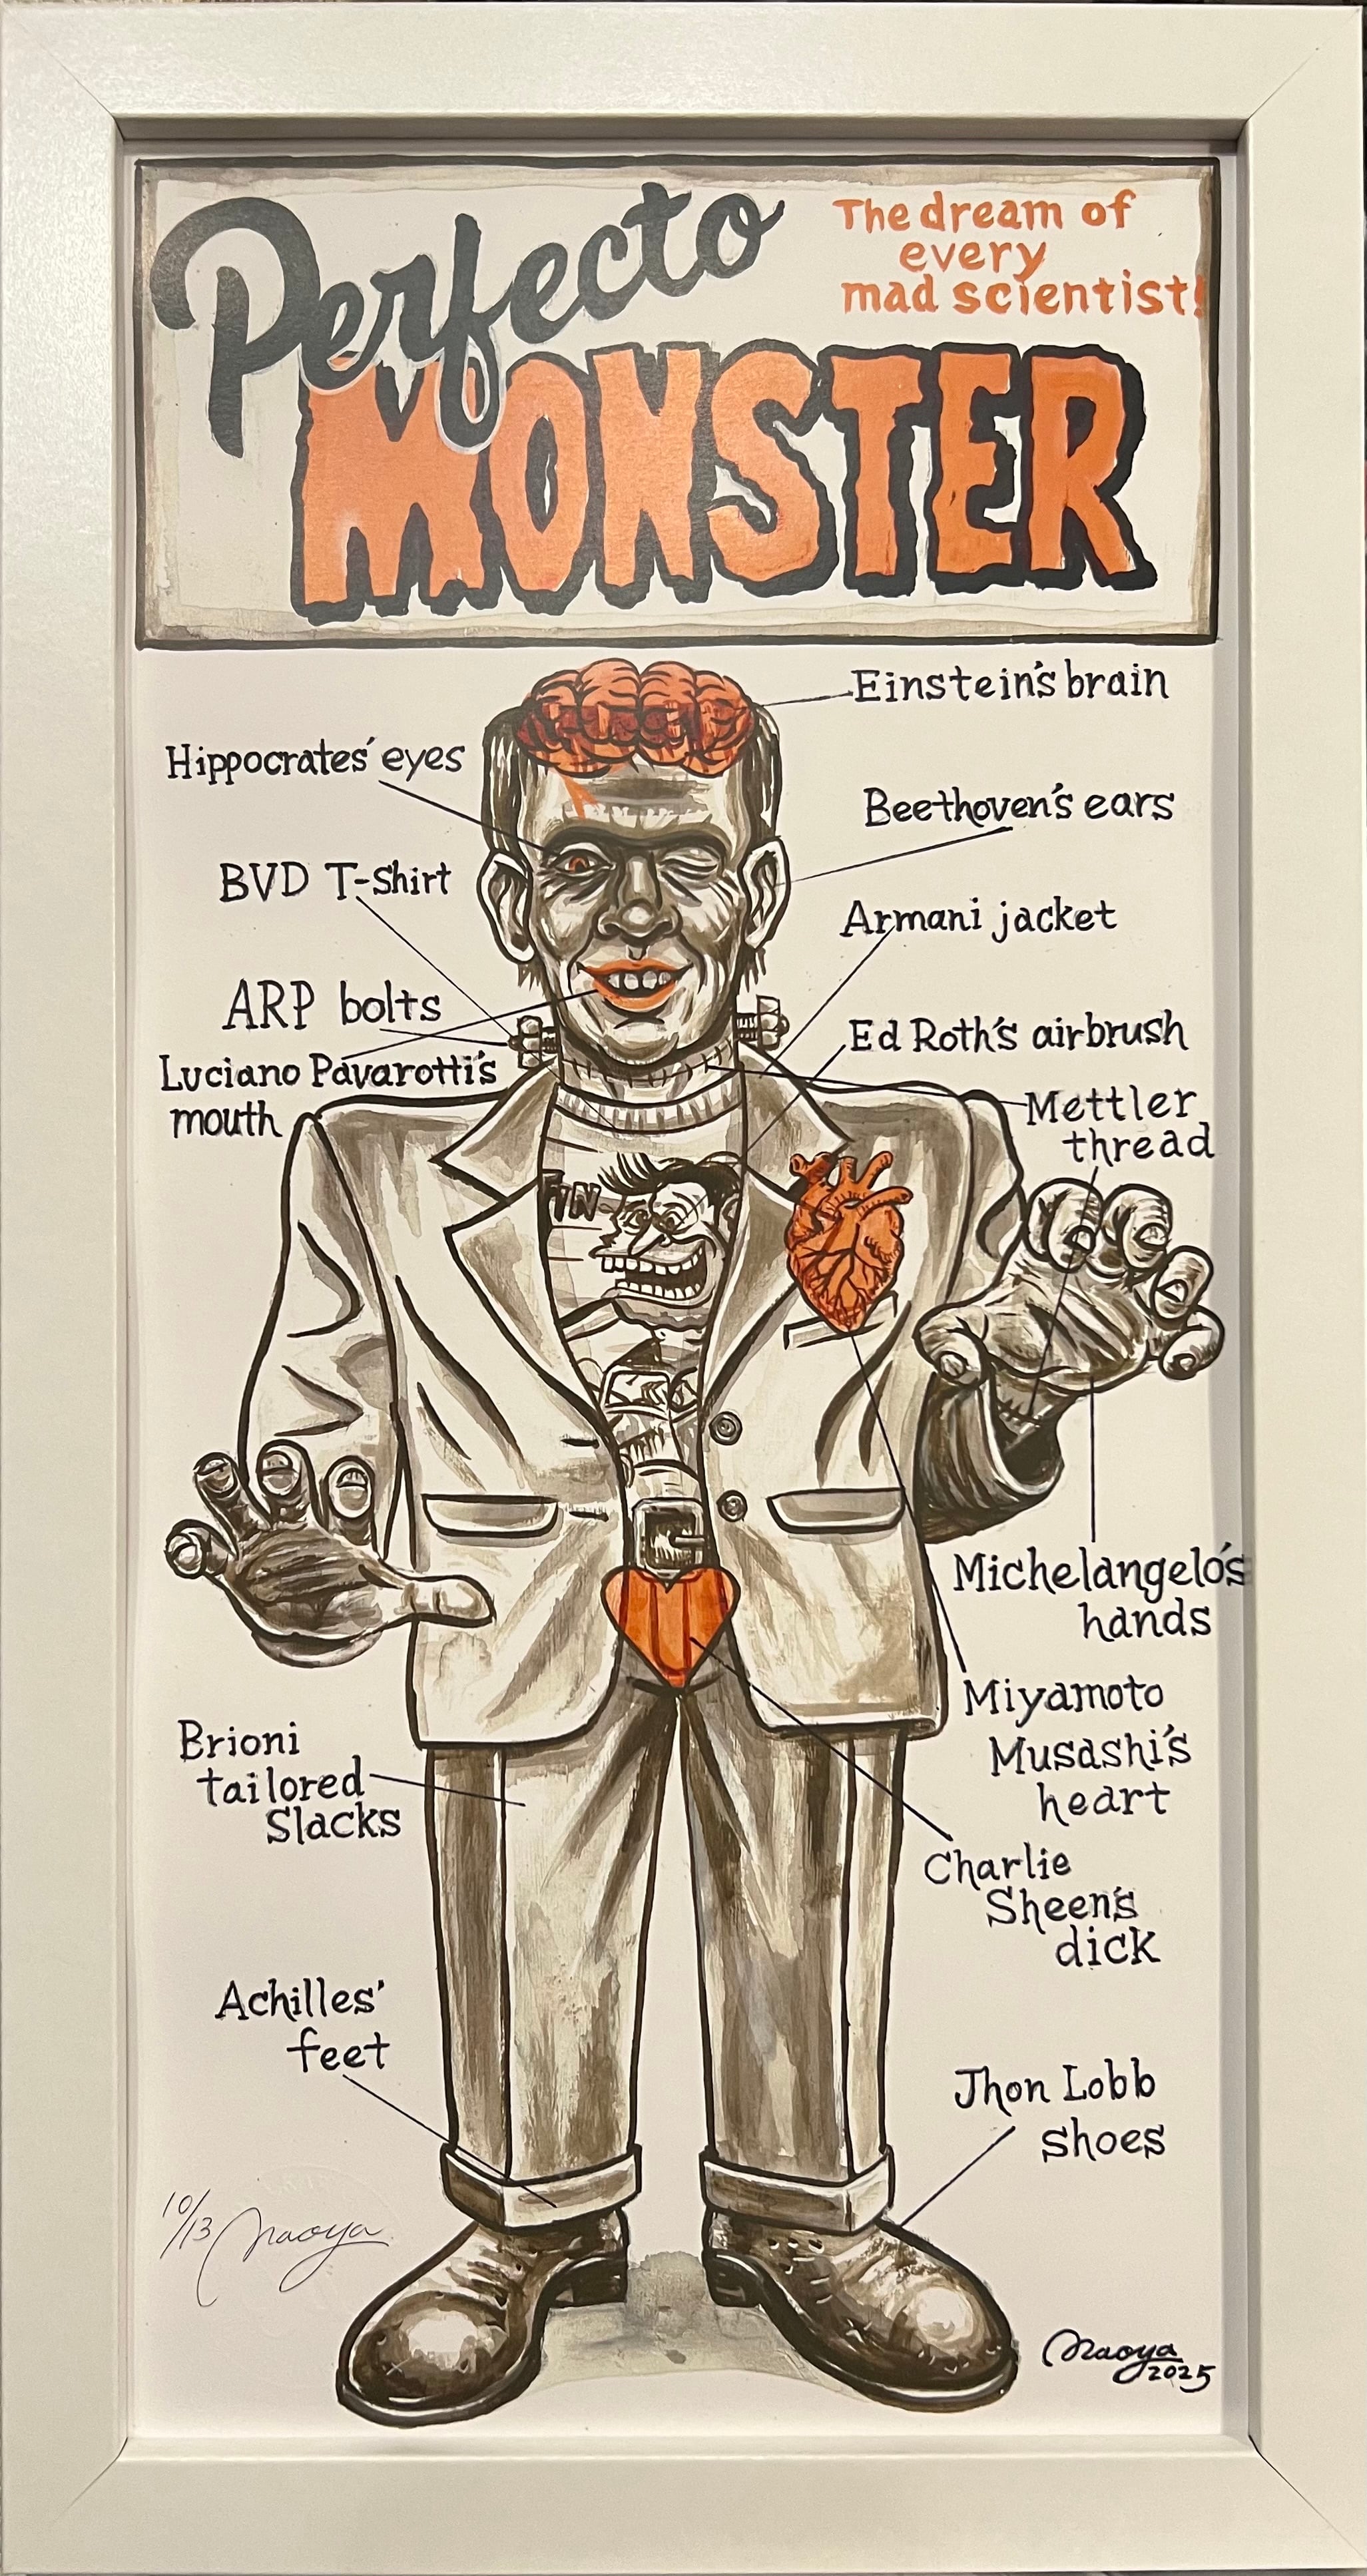 Perfecto
MONSTER
The dream of
every
mad scientist!
Einstein's brain
Hippocrates' eyes
Beethoven's ears
BVD T-Shirt
Armani jacket
ARP bolts
Ed Roth's airbrush
Luciano Pavarotti's
mouth
Mettler
thread
Michelangelo's
hands
Miyamoto
Musashi's
heart
Brioni
tailored
Slacks
Charlie
Sheen's
dick
Achilles'
feet
Jhon Lobb
shoes
10/13 Naoya
Naoya
2025